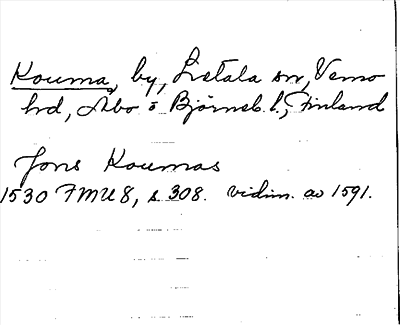 Kouma, by, Letala sn, Vemo
hrd, Åbo o Björneb. l., Finland
Jons Koumas
1530 FMU 8, s 308. vidim. av 1591.